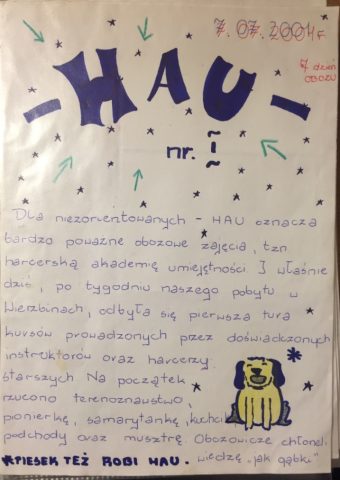 7.07.2004r
7 dzień
OBOZU
-HAU-
nr. 1
Dla niezorientowanych - HAU oznacza
bardzo poważne obozowe zajęcia, tzn.
harcerską akademię umiejętności. I właśnie
dziś, po tygodniu naszego pobytu w
Wierzbinach, odbyła się pierwsza tura
kursów prowadzonych przez doświadczonych
instruktorów oraz harcerzy
starszych. Na początek
rzucono terenoznawstwo,
pionierkę, samarytankę,
podchody oraz musztrę. Obozowicze chłonęli
wiedzę "jak gąbki"
*PIESEK TEŻ ROBI HAU.